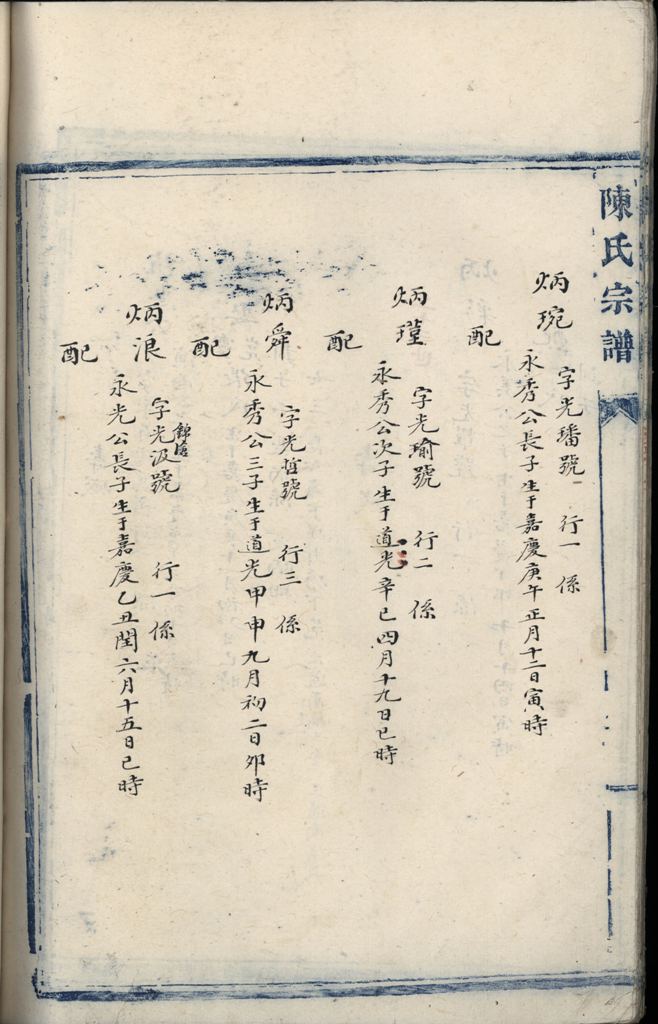 陳氏宗譜
炳琬
字光璠號 行一 係
永秀公長子生于嘉慶庚午正月十二日寅時
配
炳瑾
字光瑜號 行二 係
永秀公次子生于道光辛巳四月十九日巳時
配
炳舜
字光哲號 行三 係
永秀公三子生于道光甲申九月初二日卯時
配
炳浪
字光汲號 行一 係
永光公長子生于嘉慶乙丑閏六月十五日巳時
配